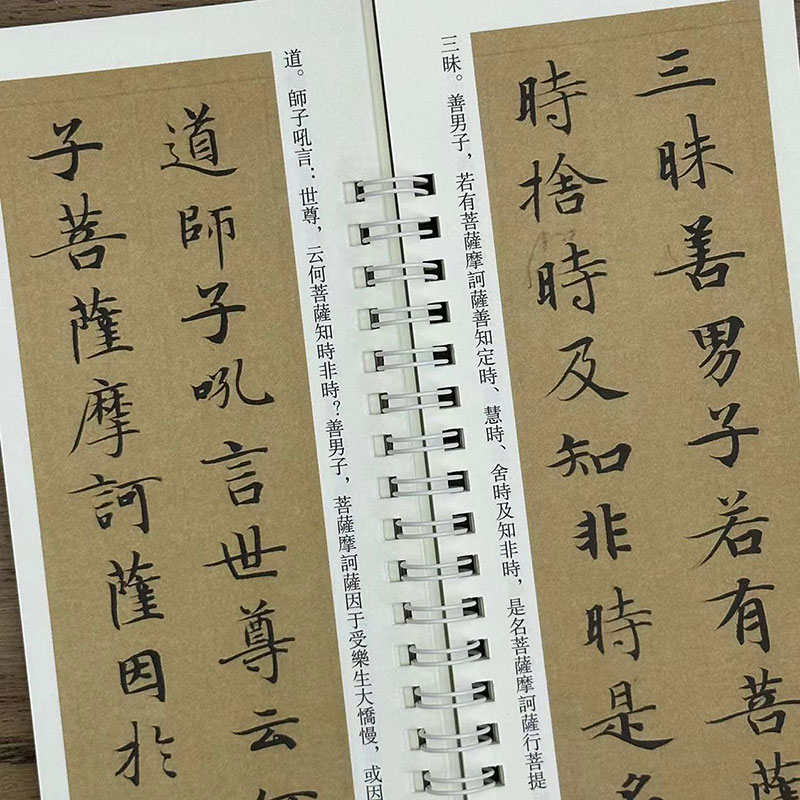 三昧善男子若有菩薩
時捨時及知非時是名
三昧。善男子,若有菩薩摩訶薩善知定時、慧時、舍時及知非時,是名菩薩摩訶薩行菩提
道。師子吼言:世尊,云何菩薩知時非時?善男子,菩薩摩訶薩因于受樂生大憍慢,或因
道師子吼言世尊云何
子菩薩摩訶薩因於